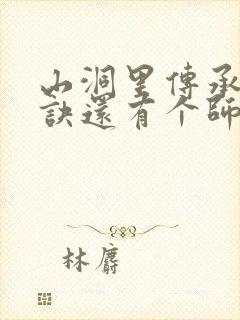 山洞里傳承
訣還有个師
林麝